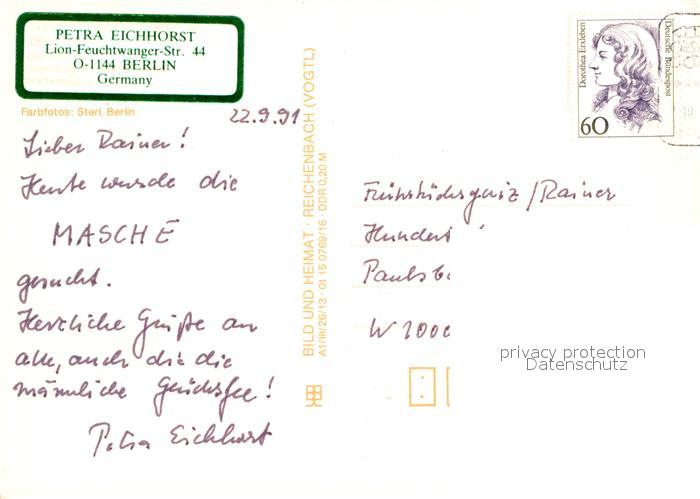 PETRA EICHHORST
Lion-Feuchtwanger-Str. 44
O-1144 BERLIN
Germany
Farbfotos: Sterl, Berlin
22.9.91
Lieber Rainer!
Heute wurde die
MASCHE
gesucht.
Herzliche Grüße an
alle, auch die
männliche Glücksfee!
Petra Eichhorst
BILD UND HEIMAT · REICHENBACH (VOGTL)
A1/III/26/13 · 01 15 0769/16 · DDR 0,20 M
Dorothea Erxleben
Deutsche Bundespost
60
Frühstücksquiz/Rainer
Hundert
W 1000
privacy protection
Datenschutz